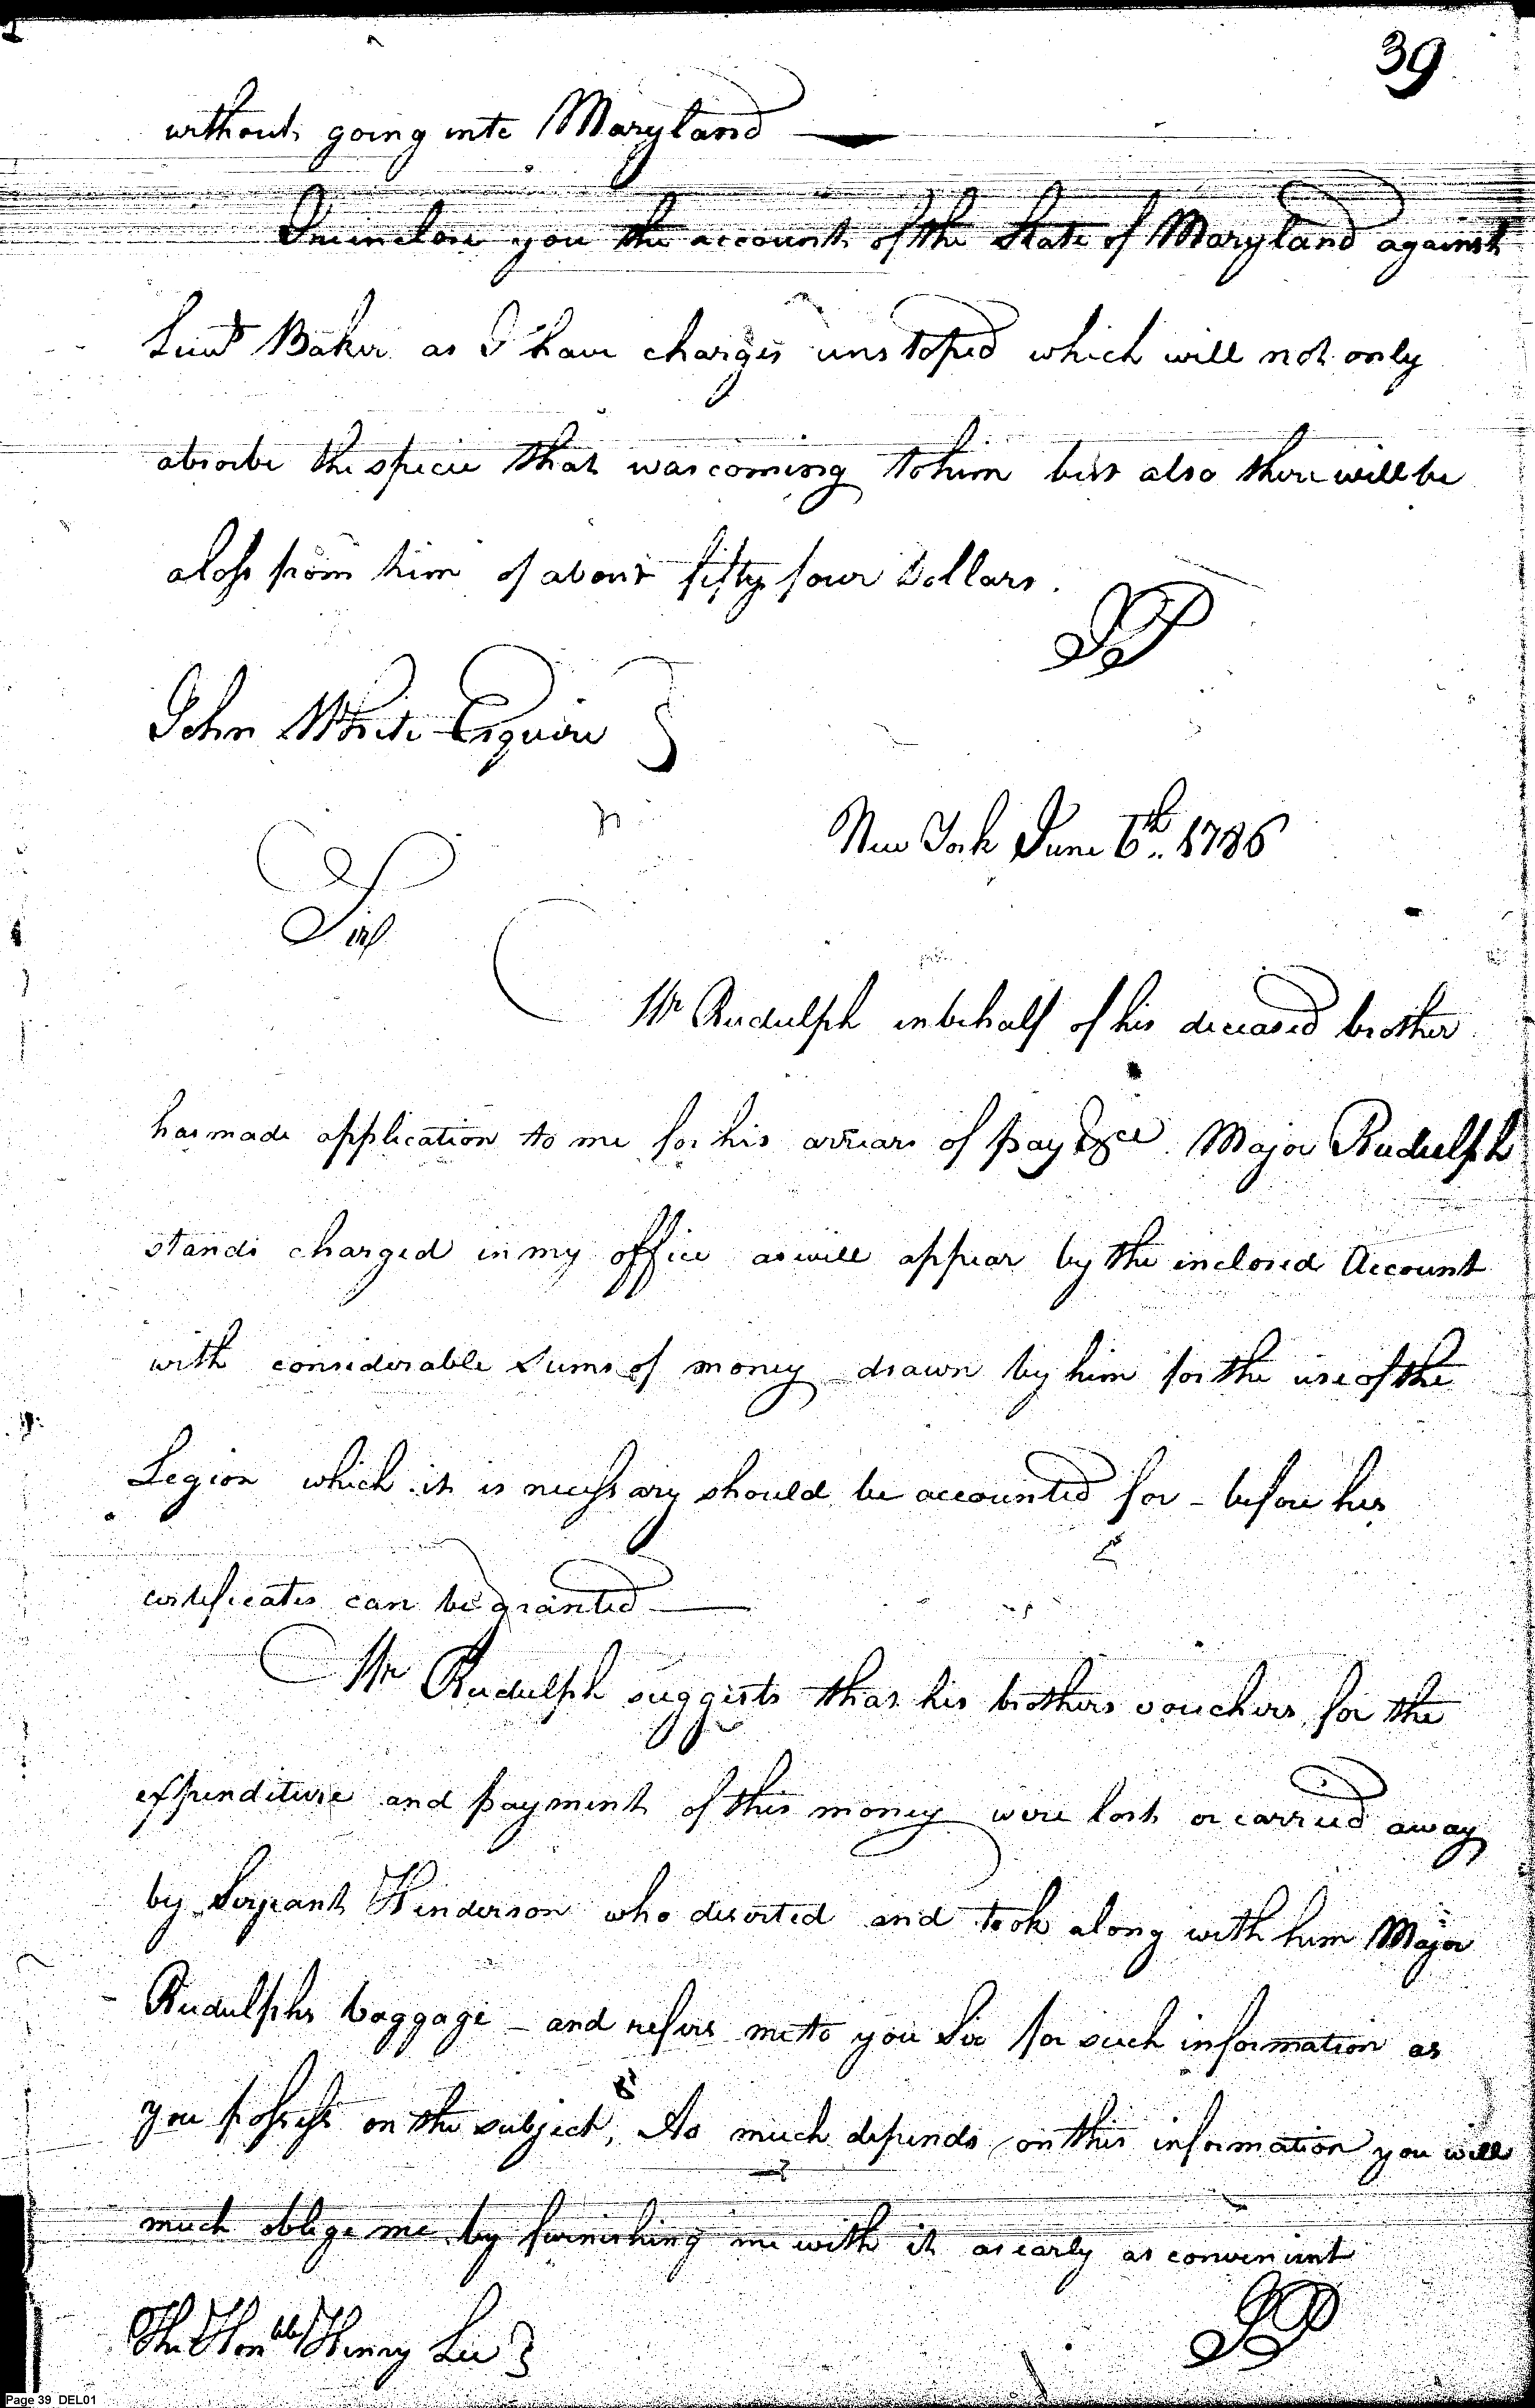 39
without going into Maryland
I reinclose you the account of the State of Maryland against
Lieut Baker as I have charges unstoped which will not only
absorbe the specie that was coming to him but also there will be
a loss from him of about fifty four Dollars.
JP
John White Esquire }
New York June 6th. 1786
Sir
Mr Rudulph in behalf of his deceased brother
has made application to me for his arrears of pay &ce. Major Rudulph
stands charged in my office as will appear by the inclosed Account
with considerable Sums of money drawn by him for the use of the
Legion which it is necessary should be accounted for - before his
certificates can be granted
Mr Rudulph suggests that his brothers vouchers for the
expenditure and payment of this money were lost or carried away
by Serjeant Henderson who deserted and took along with him Major
Rudulphs baggage - and refers me to you Sir for such information as
you possess on the subject, As much depends on this information you will
much oblige me by furnishing me with it as early as convenient
JP
The Honble Henry Lee }
Page 39 DEL01